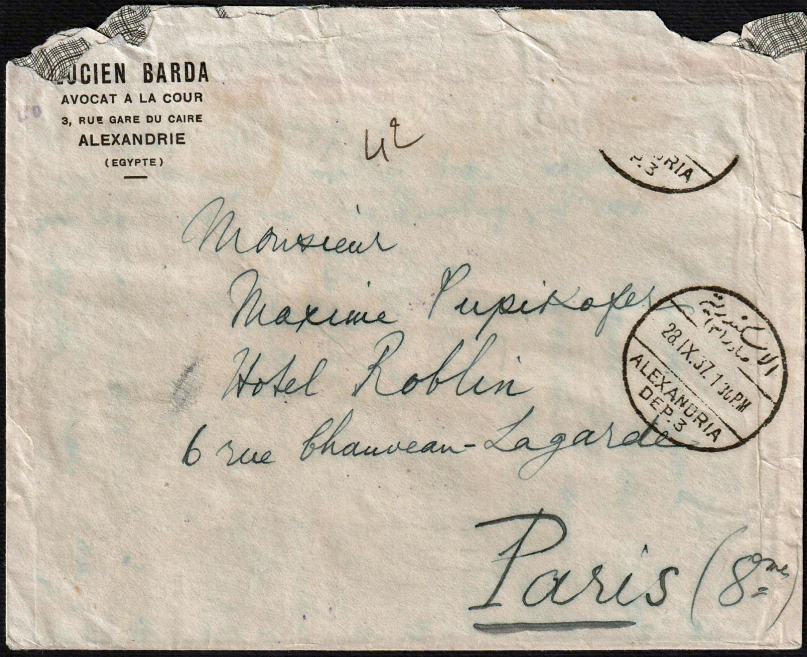 LUCIEN BARDA
AVOCAT A LA COUR
3, RUE GARE DU CAIRE
ALEXANDRIE
(EGYPTE)
RIA
P.3
Monsieur
Maxime Pupikofer
Hotel Roblin
6 rue Chauveau-Lagarde
Paris (8eme)
28.IX.37.1 30PM
ALEXANDRIA
DEP.3